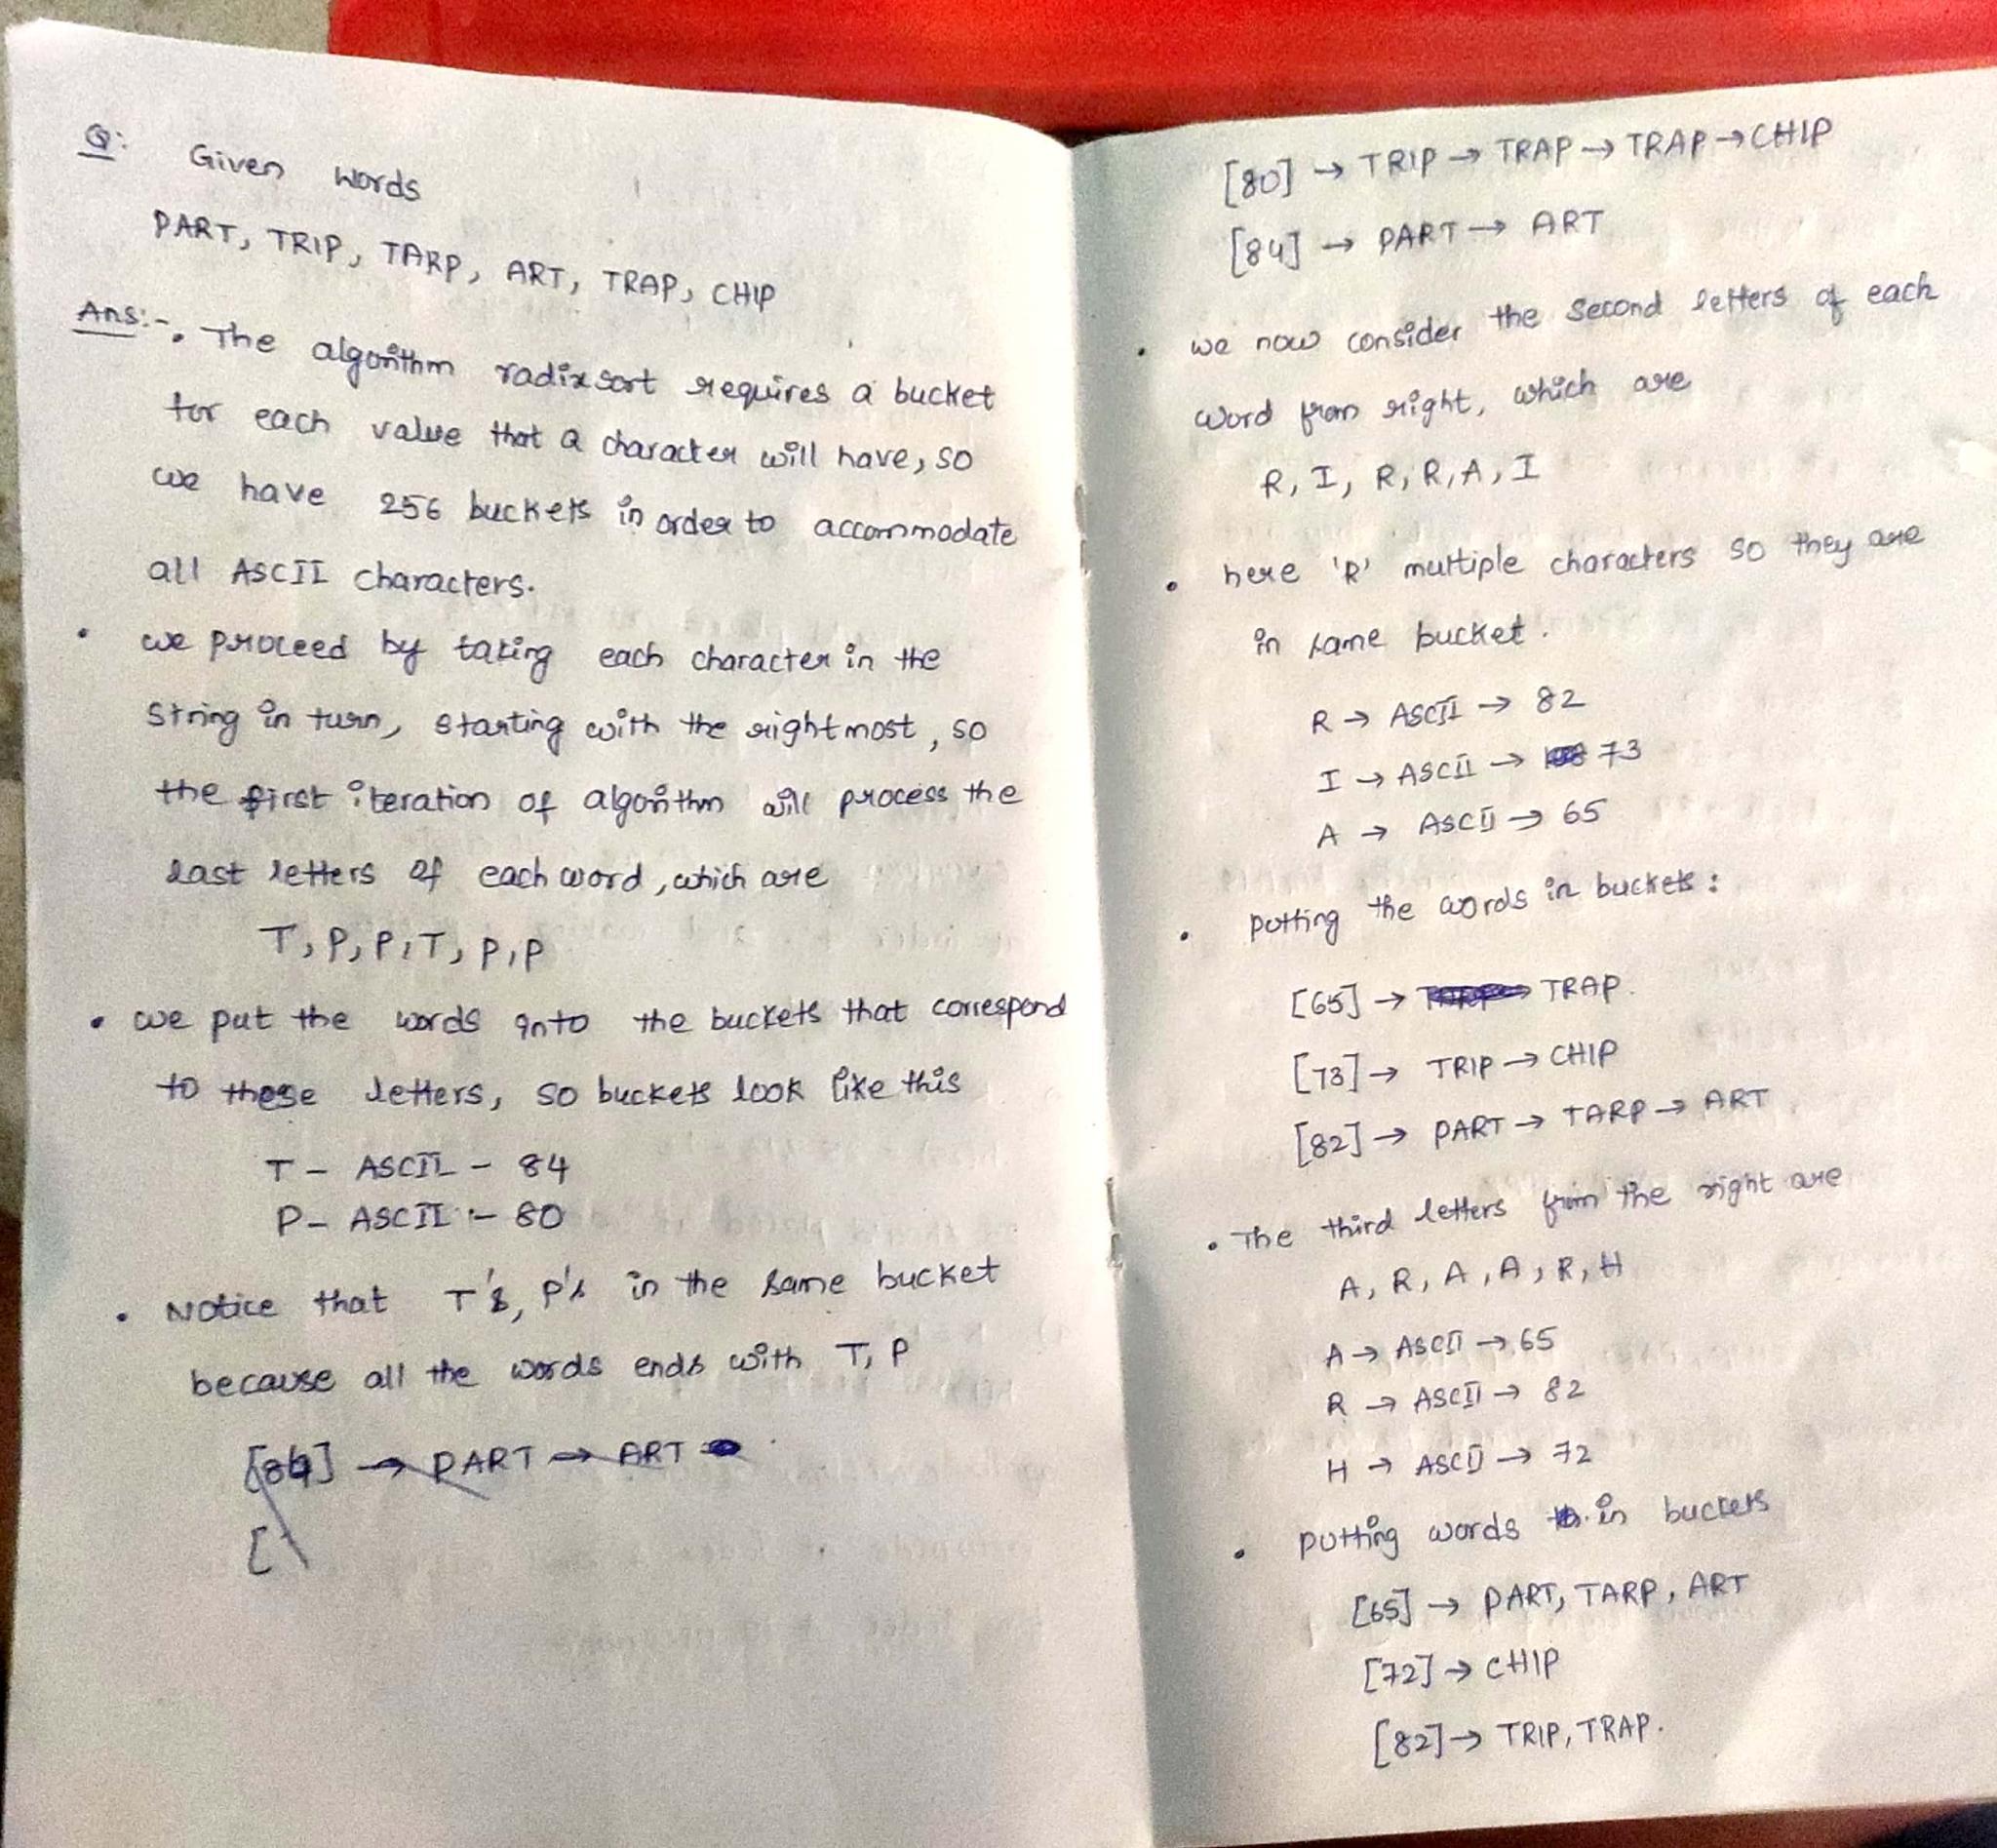 Q: Given words
PART, TRIP, TARP, ART, TRAP, CHIP
Ans:- • The algorithm radixsort requires a bucket
for each value that a character will have, so
we have 256 buckets in order to accommodate
all ASCII characters.
• we proceed by taking each character in the
string in turn, starting with the rightmost, so
the first iteration of algorithm will process the
last letters of each word, which are
T, P, P, T, P, P
• we put the words into the buckets that correspond
to these letters, so buckets look like this
T - ASCII - 84
P - ASCII :- 80
• Notice that T's, P's in the same bucket
because all the words ends with T, P
[84] → PART → ART
[
[80] → TRIP → TRAP → TRAP → CHIP
[84] → PART → ART
• we now consider the second letters of each
word from right, which are
R, I, R, R, A, I
• here 'R' multiple characters so they are
in same bucket.
R → ASCII → 82
I → ASCII → 73
A → ASCII → 65
• putting the words in buckets:
[65] → TRAP.
[73] → TRIP → CHIP
[82] → PART → TARP → ART
• The third letters from the right are
A, R, A, A, R, H
A → ASCII → 65
R → ASCII → 82
H → ASCII → 72
• putting words in buckets
[65] → PART, TARP, ART
[72] → CHIP
[82] → TRIP, TRAP.